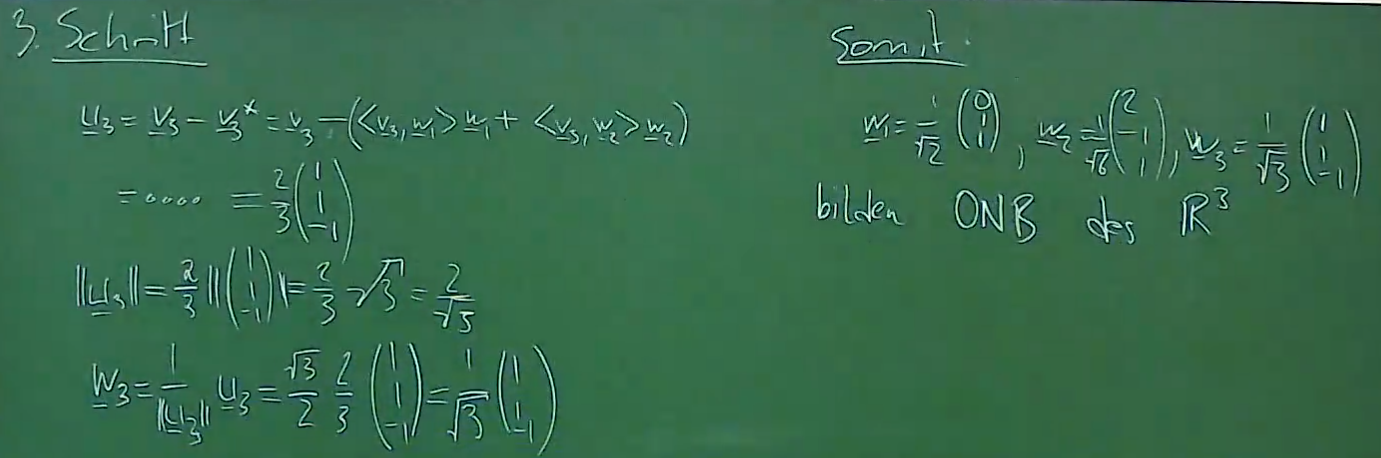 3. Schritt
u₃ = v₃ − v₃* = v₃ − (<v₃, w₁> w₁ + <v₃, w₂> w₂)
= .... = 2/3 (1 1 −1)
||u₃|| = 2/3 ||(1 1 −1)|| = 2/3 √3 = 2/√3
w₃ = 1/||u₃|| u₃ = √3/2 2/3 (1 1 −1) = 1/√3 (1 1 −1)
Somit:
w₁ = 1/√2 (0 1 1), w₂ = 1/√6 (2 −1 1), w₃ = 1/√3 (1 1 −1)
bilden ONB des ℝ³